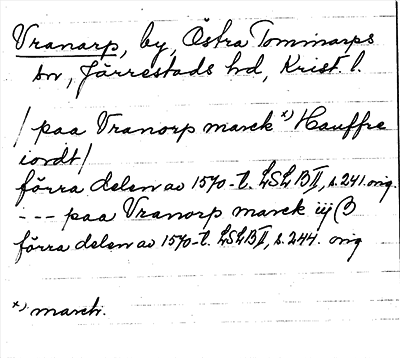 Vranarp, by, Östra Tommarps
sn, Järrestads hd, Krist. l.
/ paa Vranorp marck x) Hauffre
iordt/
förra delen av 1570-t. LSLB II, s. 241. orig.
--- paa Vranorp marck iij β
förra delen av 1570-t. LSLB II, s. 244. orig
x) march.